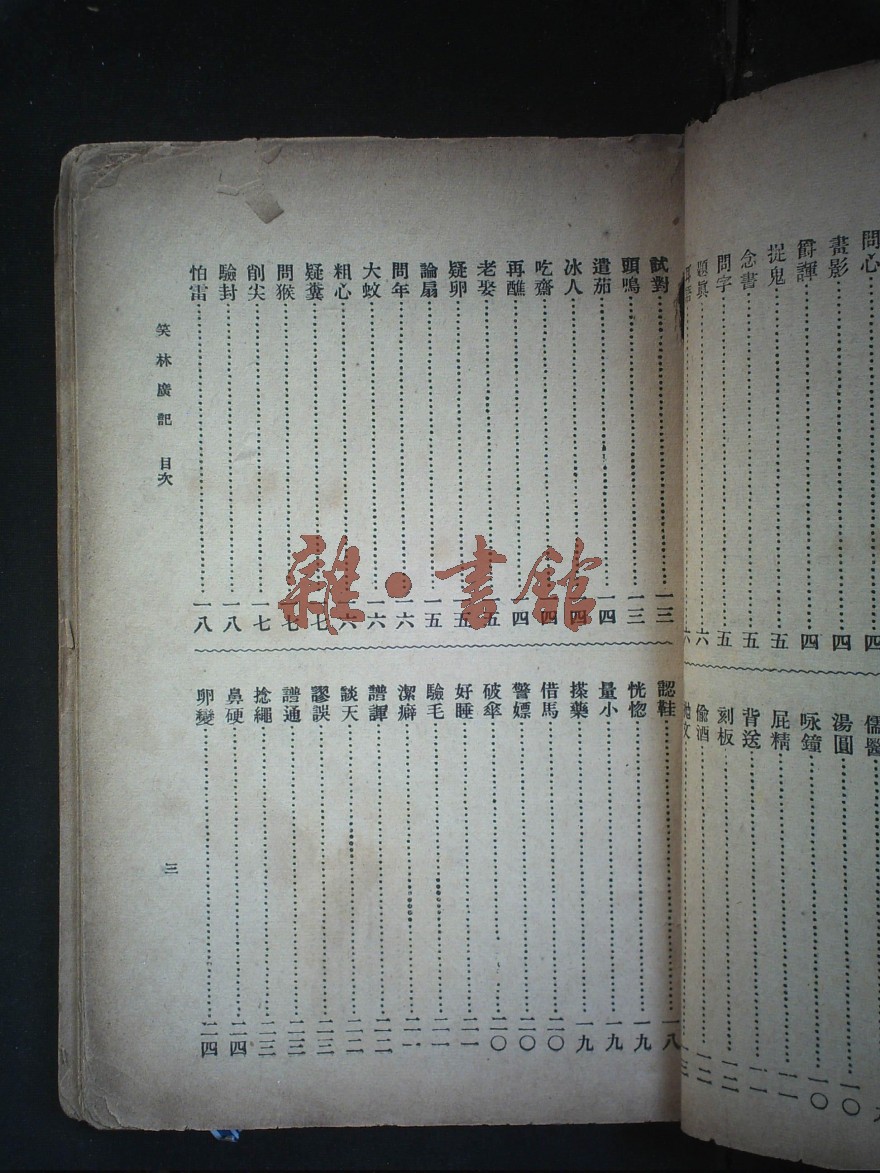 問心……四
畫影……四
爵諢……四
捉鬼……五
念書……五
問字……五
真……六
語……六
儒醫……
湯圓……一〇
咏鐘……一〇
屁精……一一
背送……一一
刻板……一二
偷酒……一二
文……一三
試對……一三
頭鳴……一三
遺茄……一四
冰人……一四
吃齋……一四
再醮……一四
老娶……一五
疑卵……一五
論扇……一五
問年……一六
大蚊……一六
粗心……一六
疑糞……一七
問猴……一七
削尖……一七
驗封……一八
怕雷……一八
認鞋……一八
恍惚……一九
量小……一九
搽藥……一九
借馬……二〇
警嫖……二〇
破傘……二〇
好睡……二一
驗毛……二一
潔癖……二一
譜諢……二二
談天……二二
謬誤……二三
譜通……二三
捻繩……二三
鼻硬……二四
卵變……二四
笑林廣記 目次
三
雜·書館